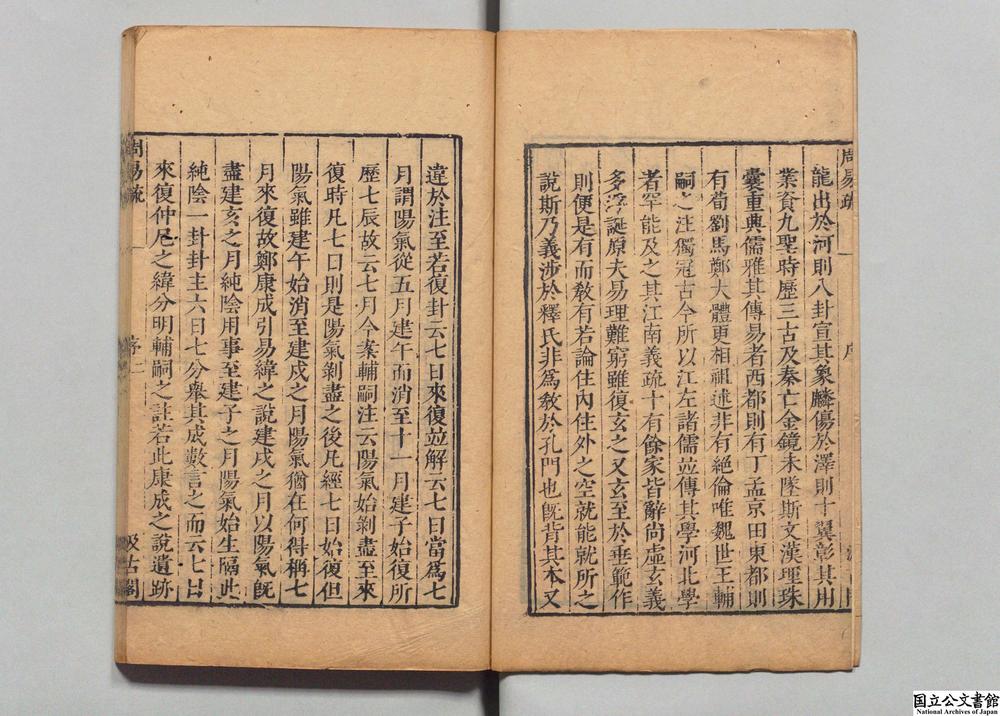 周易疏
一
序
龍出於河則八卦宣其象麟傷於澤則十翼彰其用
業資九聖時歷三古及秦亡金鏡未墜斯文漢理珠
囊重興儒雅其傳易者西都則有丁孟京田東都則
有荀劉馬鄭大體更相祖述非有絕倫唯魏世王輔
嗣之注獨冠古今所以江左諸儒竝傳其學河北學
者罕能及之其江南義疏十有餘家皆辭尚虛玄義
多浮誕原夫易理難窮雖復玄之又玄至於垂範作
則便是有而敎有若論住內住外之空就能就所之
說斯乃義涉於釋氏非爲敎於孔門也旣背其本又
違於注至若復卦云七日來復竝解云七日當爲七
月謂陽氣從五月建午而消至十一月建子始復所
歷七辰故云七月今案輔嗣注云陽氣始剝盡至來
復時凡七日則是陽氣剝盡之後凡經七日始復但
陽氣雖建午始消至建戍之月陽氣猶在何得稱七
月來復故鄭康成引易緯之說建戍之月以陽氣旣
盡建亥之月純陰用事至建子之月陽氣始生隔此
純陰一卦卦主六日七分舉其成數言之而云七日
來復仲尼之緯分明輔嗣之註若此康成之說遺跡
周易疏
一
序二
汲古閣
国立公文書館
National Archives of Japan